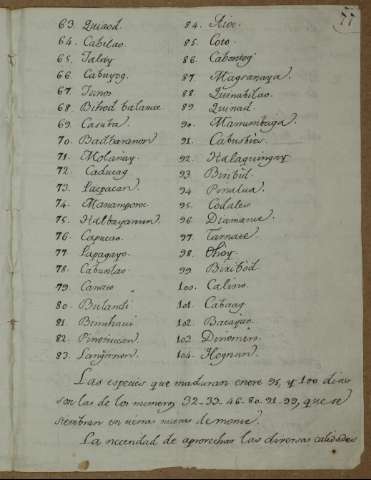 77
63. Quinod.
64. Cabilao.
65. Talay
66. Cabuyog.
67. Tunos
68. Bihod balanac
69. Casuba.
70. Badbaranon
71. Molanay.
72. Caducag
73. Lacpacan.
74. Manampone
75. Halbayanun.
76. Capucao.
77. Papagayo.
78. Cabunlao
79. Canaco
80. Bulandi
81. Binuhaui
82. Pinonucum
83. Langinon.
84. Aive.
85. Coro.
86. Cabontog
87. Magranaya.
88. Quinabilao.
89. Quinad.
90. Manumbaga
91. Cabusbis
92. Halaguingay
93. Binbil
94. Penalua.
95. Codales
96. Diamanue.
97. Tarnate.
98. Ohoy
99. Bixibod
100. Calino.
101. Cabaag
102. Bacayao
103. Dinomino
104. Hognan.
Las especies que maduran entre 95, y 100 dias
son las de los numeros 32-33-46-80-91-99, que se
siembran en tierras de monte.
La necesidad de aprovechar las diversas calidades